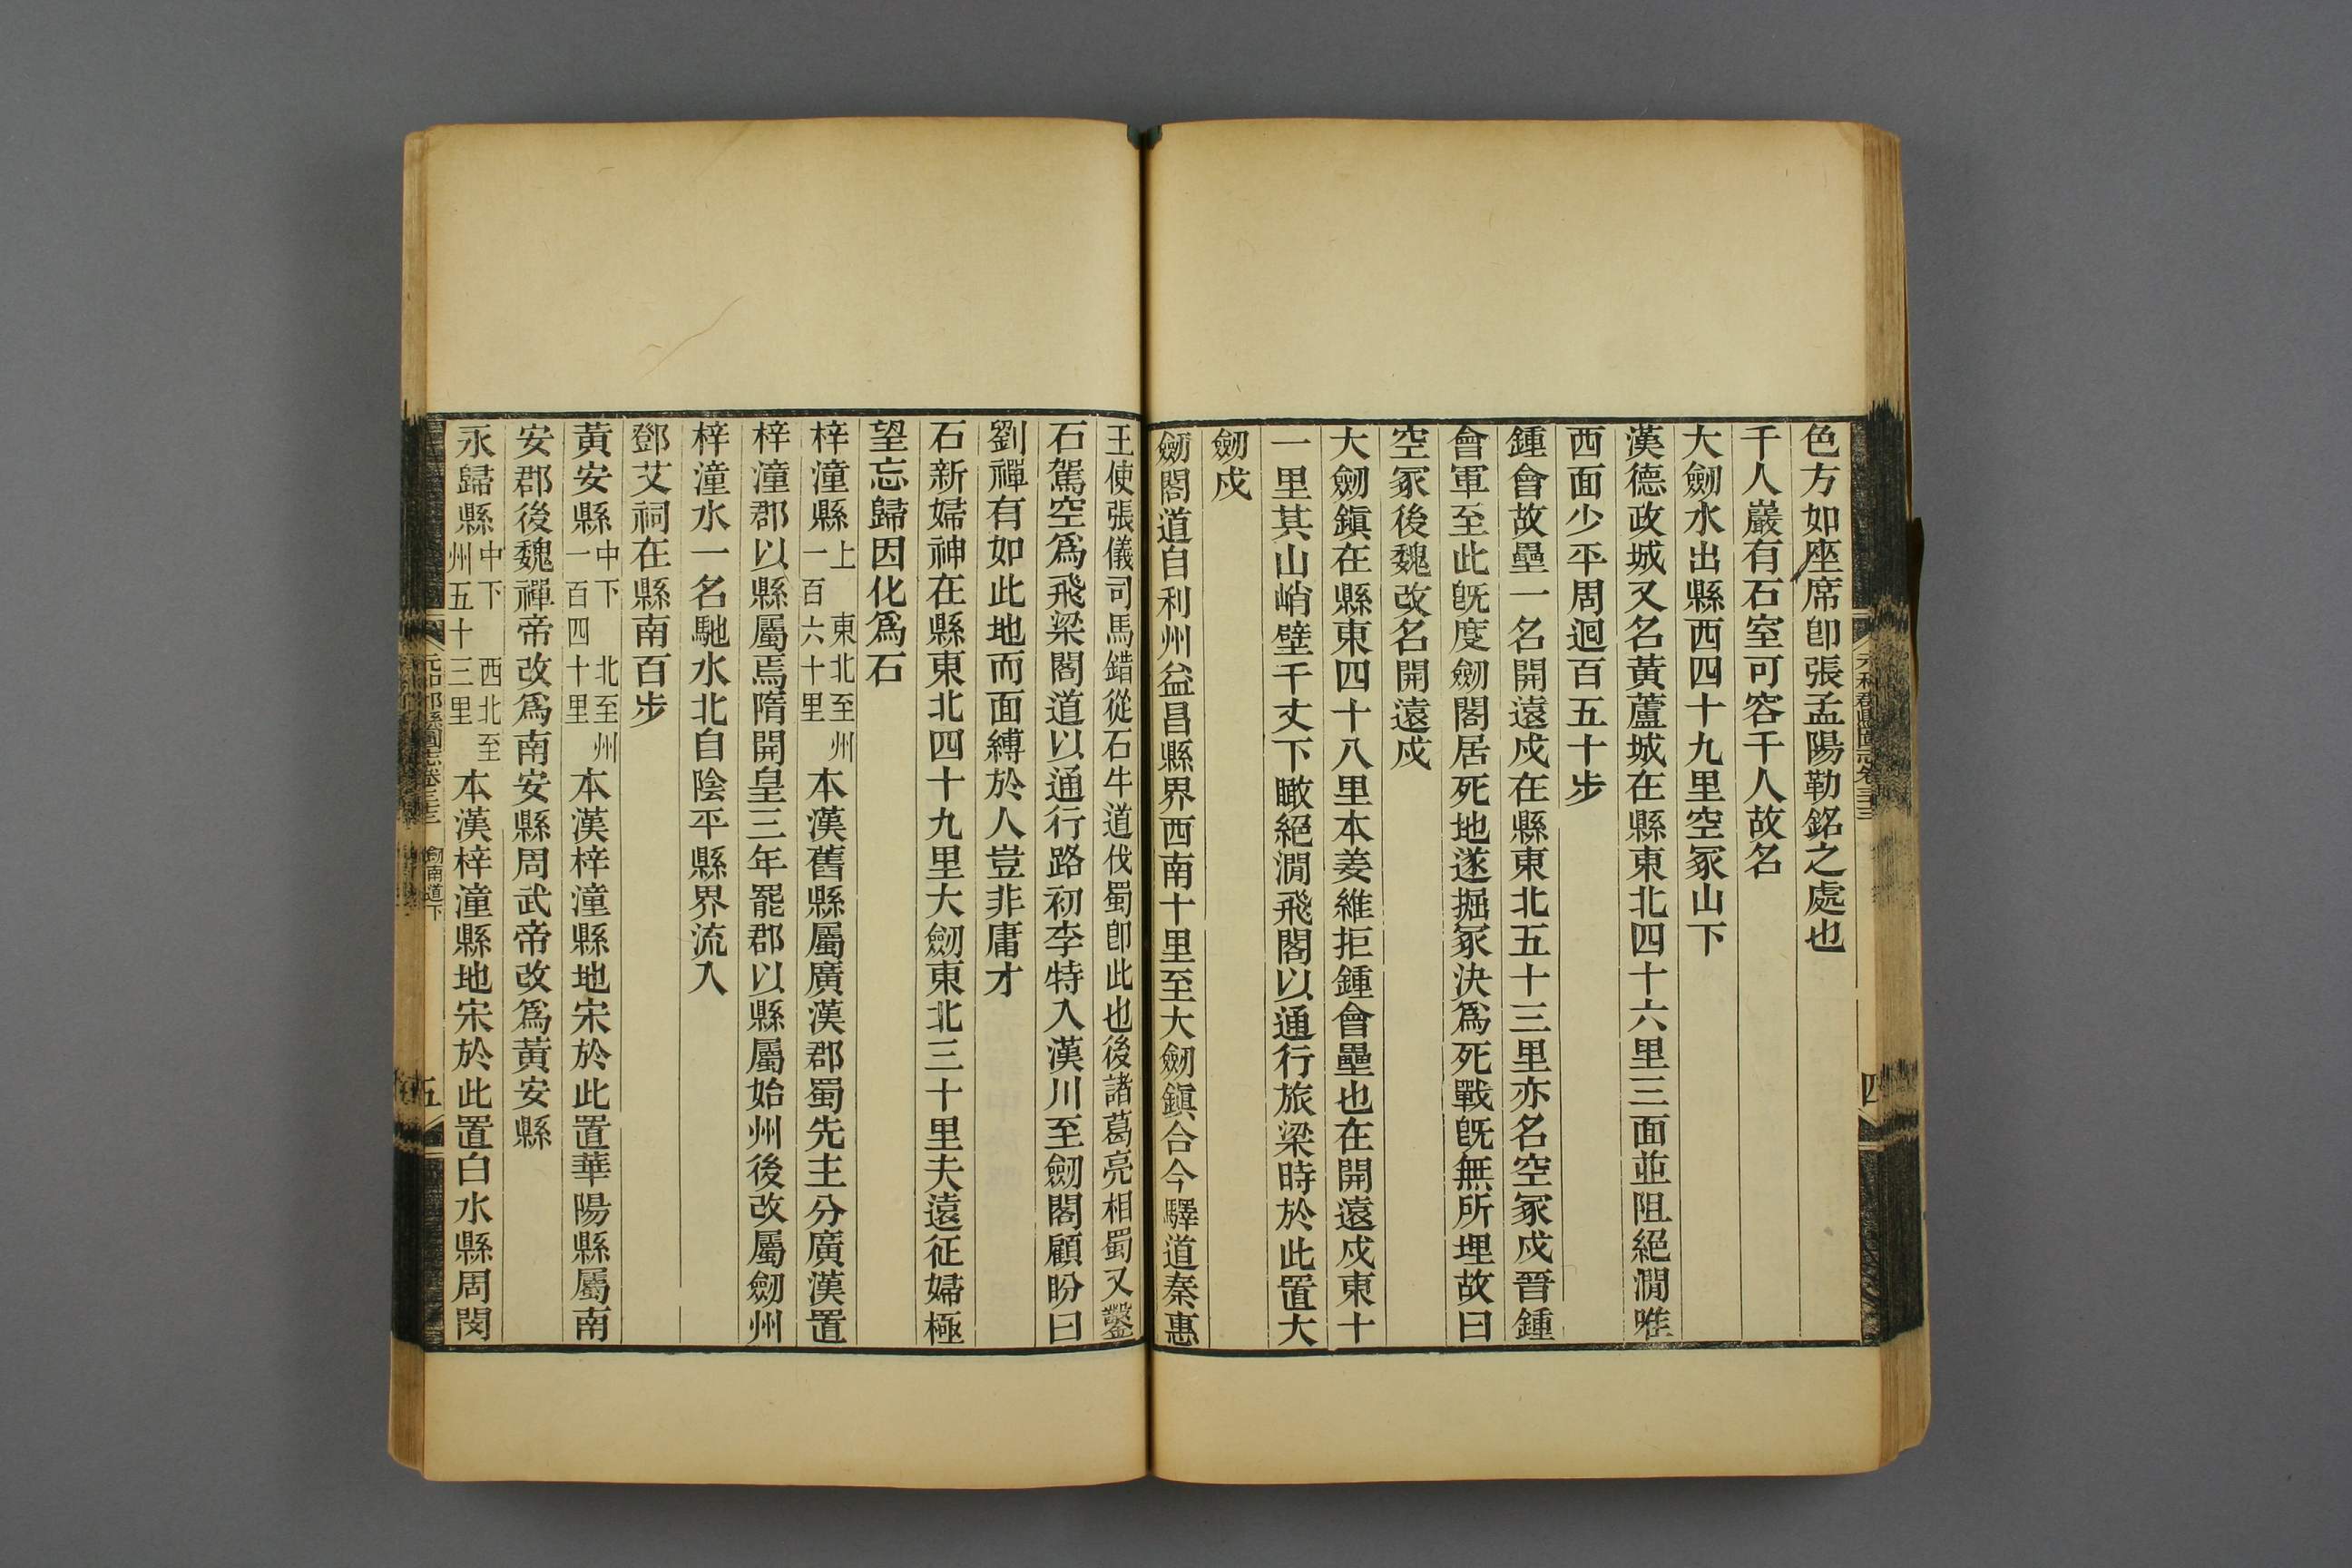 色方如座席卽張孟陽勒銘之處也
千人巖有石室可容千人故名
大劒水出縣西四十九里空冢山下
漢德政城又名黃蘆城在縣東北四十六里三面並阻絕澗唯
西面少平周迴百五十步
鍾會故壘一名開遠戍在縣東北五十三里亦名空冢戍晉鍾
會軍至此旣度劒閣居死地遂掘冢決爲死戰旣無所埋故曰
空冢後魏改名開遠戍
大劒鎭在縣東四十八里本姜維拒鍾會壘也在開遠戍東十
一里其山峭壁千丈下瞰絕澗飛閣以通行旅梁時於此置大
劒戍
劒閣道自利州益昌縣界西南十里至大劒鎭合今驛道秦惠
王使張儀司馬錯從石牛道伐蜀卽此也後諸葛亮相蜀又鑿
石駕空爲飛梁閣道以通行路初李特入漢川至劒閣顧盼曰
劉禪有如此地而面縛於人豈非庸才
石新婦神在縣東北四十九里大劒東北三十里夫遠征婦極
望忘歸因化爲石
梓潼縣上 東北至州一百六十里本漢舊縣屬廣漢郡蜀先主分廣漢置
梓潼郡以縣屬焉隋開皇三年罷郡以縣屬始州後改屬劒州
梓潼水一名馳水北自陰平縣界流入
鄧艾祠在縣南百步
黃安縣中下 北至州一百四十里本漢梓潼縣地宋於此置華陽縣屬南
安郡後魏禪帝改爲南安縣周武帝改爲黃安縣
永歸縣中下 西北至州五十三里本漢梓潼縣地宋於此置白水縣周閔
元和郡縣圖志卷三十三
四
元和郡縣圖志卷三十三 劒南道下
五